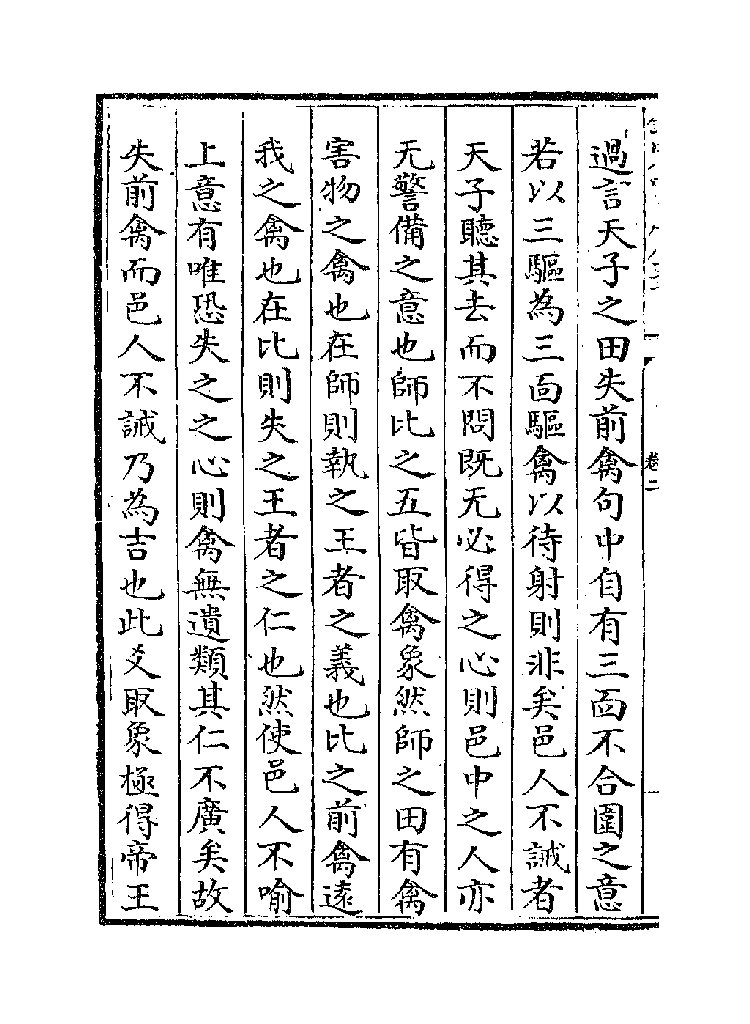 過言天子之田失前禽句中自有三面不合圍之意
若以三驅為三面驅禽以待射則非矣邑人不誡者
天子聽其去而不問既无必得之心則邑中之人亦
无警備之意也師比之五皆取禽象然師之田有禽
害物之禽也在師則執之王者之義也比之前禽遠
我之禽也在比則失之王者之仁也然使邑人不喻
上意有唯恐失之之心則禽無遺類其仁不廣矣故
失前禽而邑人不誡乃為吉也此爻取象極得帝王
卷二